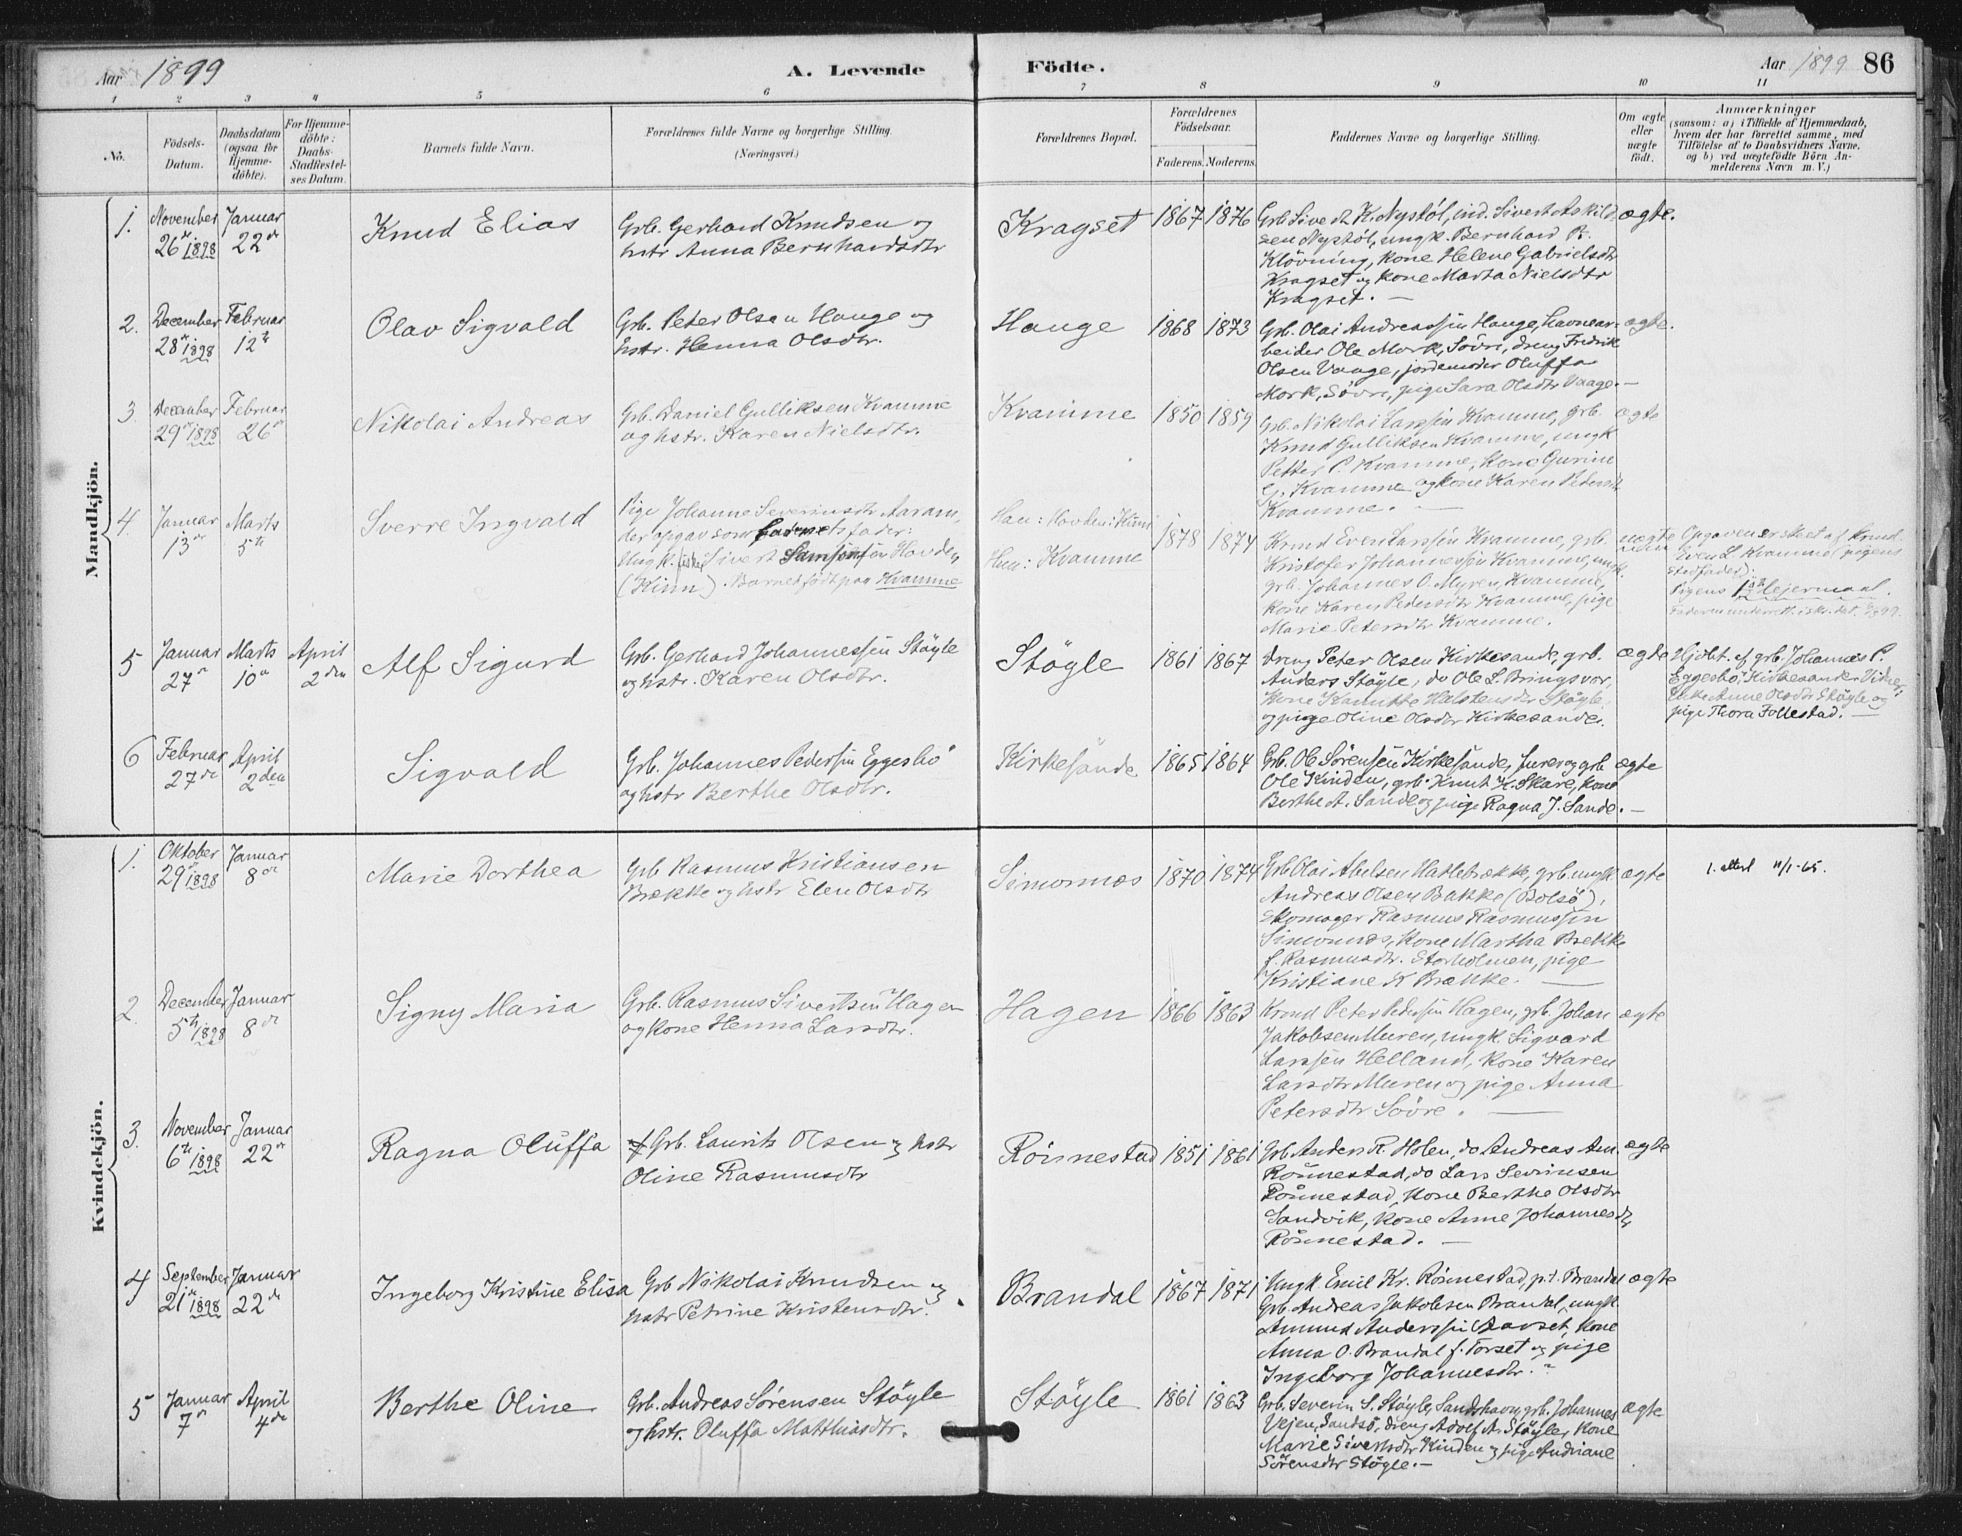 Aar 1899
A. Levende
Födte.
Aar 1899 86
1 2 3 4 5 6 7 8 9 10 11
No.
Födsels-
Datum.
Daabsdatum
(ogsaa for
Hjemme-
döbte).
For Hjemme-
döbte:
Daabs-
Stadfæstel-
ses Datum.
Barnets fulde Navn.
Forældrenes fulde Navne og borgerlige Stilling.
(Næringsvei.)
Forældrenes Bopæl.
Forældrenes
Födselsaar.
Faderens. Moderens.
Faddernes Navne og borgerlige Stilling.
Om ægte
eller
uægte
født.
Anmærkninger
(saasom: a) i Tilfælde af Hjemmedaab,
hvem der har forrettet samme, med
Tilföielse af to Daabsvidners Navne,
og b) ved uægtefödte Börn An-
melderens Navn m. V.)
Mandkjön.
1.
November
26de 1898
Januar
22de
Knud Elias
Grb. Gerhard Knudsen og
hstr Anna Bernhardsdtr
Kragset
1867 1876
Grb Sivert K. Nystöl, ind. Sivert Askild-
sen Nystöl, ungk. Bernhard R.
Klövning, kone Helene Gabrielsdtr
Kragset og kone Marta Nielsdtr
Kragset. —
ægte.
2.
December
28de 1898
Februar
12te
Olav Sigvald
Grb. Peter Olsen Hauge og
hstr. Henna Olsdtr.
Hauge
1868 1873
Grb. Olai Andreassen Hauge, havnear-
beider Ole Mork, Sövre, dreng Fredrik
Olsen Vaage, jordemoder Oluffa
Mork, Sövre, pige Sara Olsdtr Vaage. —
ægte.
3
December
29de 1898
Februar
26de
Nikolai Andreas
Grb. Daniel Gulliksen Kvamme
og hstr. Karen Nielsdtr.
Kvamme
1850 1859
Grb. Nikolai Larssen Kvamme, grb.
Knud Gulliksen Kvamme, ungk
Petter P. Kvamme, kone Gurine
G. Kvamme og kone Karen Petersdtr
Kvamme. —
ægte
4.
Januar
13de
Marts
5te
Sverre Ingvald
Pige Johanne Severinsdtr Aaram,
der opgav som barnets fader:
Ungk. fisker Sivert Samsonsen Hovden,
(Kinn). Barnet födt paa Kvamme
Han: Hovden: Kinn
Hun: Kvamme
1878 1874
Krmd Even Larssen Kvamme, grb.
Kristofer Johannessen Kvamme, ungk.
grb. Johannes O. Myren, Kvamme,
kone Karen Pedersdtr Kvamme, pige
Marie Petersdtr Kvamme.
uægte
Opgaven er skeet af Krmd.
Even L. Kvamme (pigens
stedfader).
Pigens 1ste Lejermaal.
5
Januar
27de
Marts
10de
April
2den
Alf Sigurd
Grb. Gerhard Johannessen Stöyle
og hstr. Karen Olsdtr.
Stöyle
1861 1867
dreng Peter Olsen Kirkesande, grb.
Anders Stöyle, do Ole L. Bringsvor,
kone Kanutte Halstensdtr Stöyle
og pige Oline Olsdtr Kirkesande.
ægte
Hjdbt. af grb. Johannes P.
Eggesbö, Kirkesande. Vidner:
enke Anne Olsdtr Stöyle og
pige Thora Follestad. —
6
Februar
27de
April
2den
Sigvald
Grb. Johannes Pedersen Eggesbö
og hstr Berthe Olsdtr.
Kirkesande
1865 1864
Grb. Ole Sörensen Kirkesande, furer og grb
Ole Kinden, grb. Knut K. Skare, kone
Berthe A. Sande og pige Ragna J. Sande. —
ægte
Kvindekjön.
1.
Oktober
29de 1898
Januar
8de
Marie Dorthea
Grb Rasmus Kristiansen
Brække og hstr Elen Olsdtr
Simonnæs
1870 1874
Grb Olai Abelsen Hatlebrække, grb. ungk
Andreas Olsen Bakke (Bolsö),
skomager Rasmus Rasmussen
Simonnæs, kone Martha Brekke
f. Rasmusdtr. Storholmen, pige
Kristiane K Brække. —
ægte
1. attest 11/1-65.
2.
December
5te 1898
Januar
8de
Signy Maria
Grb. Rasmus Sivertsen Hagen
og kone Henna Larsdtr.
Hagen
1866 1863
Krmd Peter Pedersen Hagen, grb. Johan
Jakobsen Muren, ungk. Sigvard
Larssen Helland, kone Karen
Larsdtr Muren og pige Anna
Petersdtr Sövre. —
ægte
3.
November
6te 1898
Januar
22de
Ragna Oluffa
† Grb. Laurits Olsen og hstr
Oline Rasmusdtr
Rönnestad
1851 1861
Grb Anders R. Holen, do Andreas Am.
Rönnestad, do Lars Severinsen
Rönnestad, kone Berthe Olsdtr
Sandvik, kone Anne Johannesdtr
Rönnestad. —
ægte
4
September
21de 1898
Januar
22de
Ingeborg Kristine Elisa
Grb Nikolai Knudsen og
hstr Petrine Kristensdtr.
Brandal
1867 1871
Ungk Emil Kr. Rönnestad, p.t. Brandal
Grb. Andreas Jakobsen Brandal, ungk.
Amund Anderssen Aarset, kone
Anna O. Brandal f. Torset og pige
Ingeborg Johannesdtr. —
ægte
5
Januar
7de
April
4de
Berthe Oline
Grb. Andreas Sörensen Stöyle
og hstr. Oluffa Matthiasdtr.
Stöyle
1861 1863
Grb. Severin S. Stöyle, Sandshavn, grb. Johannes
Vejen, Sandsö, dreng Adolf A. Stöyle, kone
Marie Sivertsdtr Kinden og pige Andriane
Sörensdtr Stöyle. —
ægte